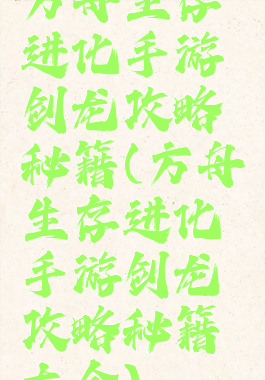 方舟生存
进化手游
剑龙攻略
秘籍(方舟
生存进化
手游剑龙
攻略秘籍
大全)